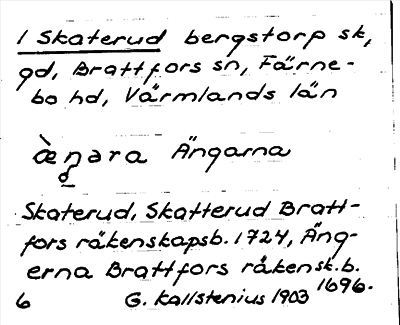 1 Skaterud bergstorp sk,
gd, Brattfors sn, Färne-
bo hd, Värmlands län
æ̀ŋara Ängarna
Skaterud, Skatterud Bratt-
fors räkenskapsb. 1724, Äng-
erna Brattfors räkensk.b.
1696.
6 G. Kallstenius 1903